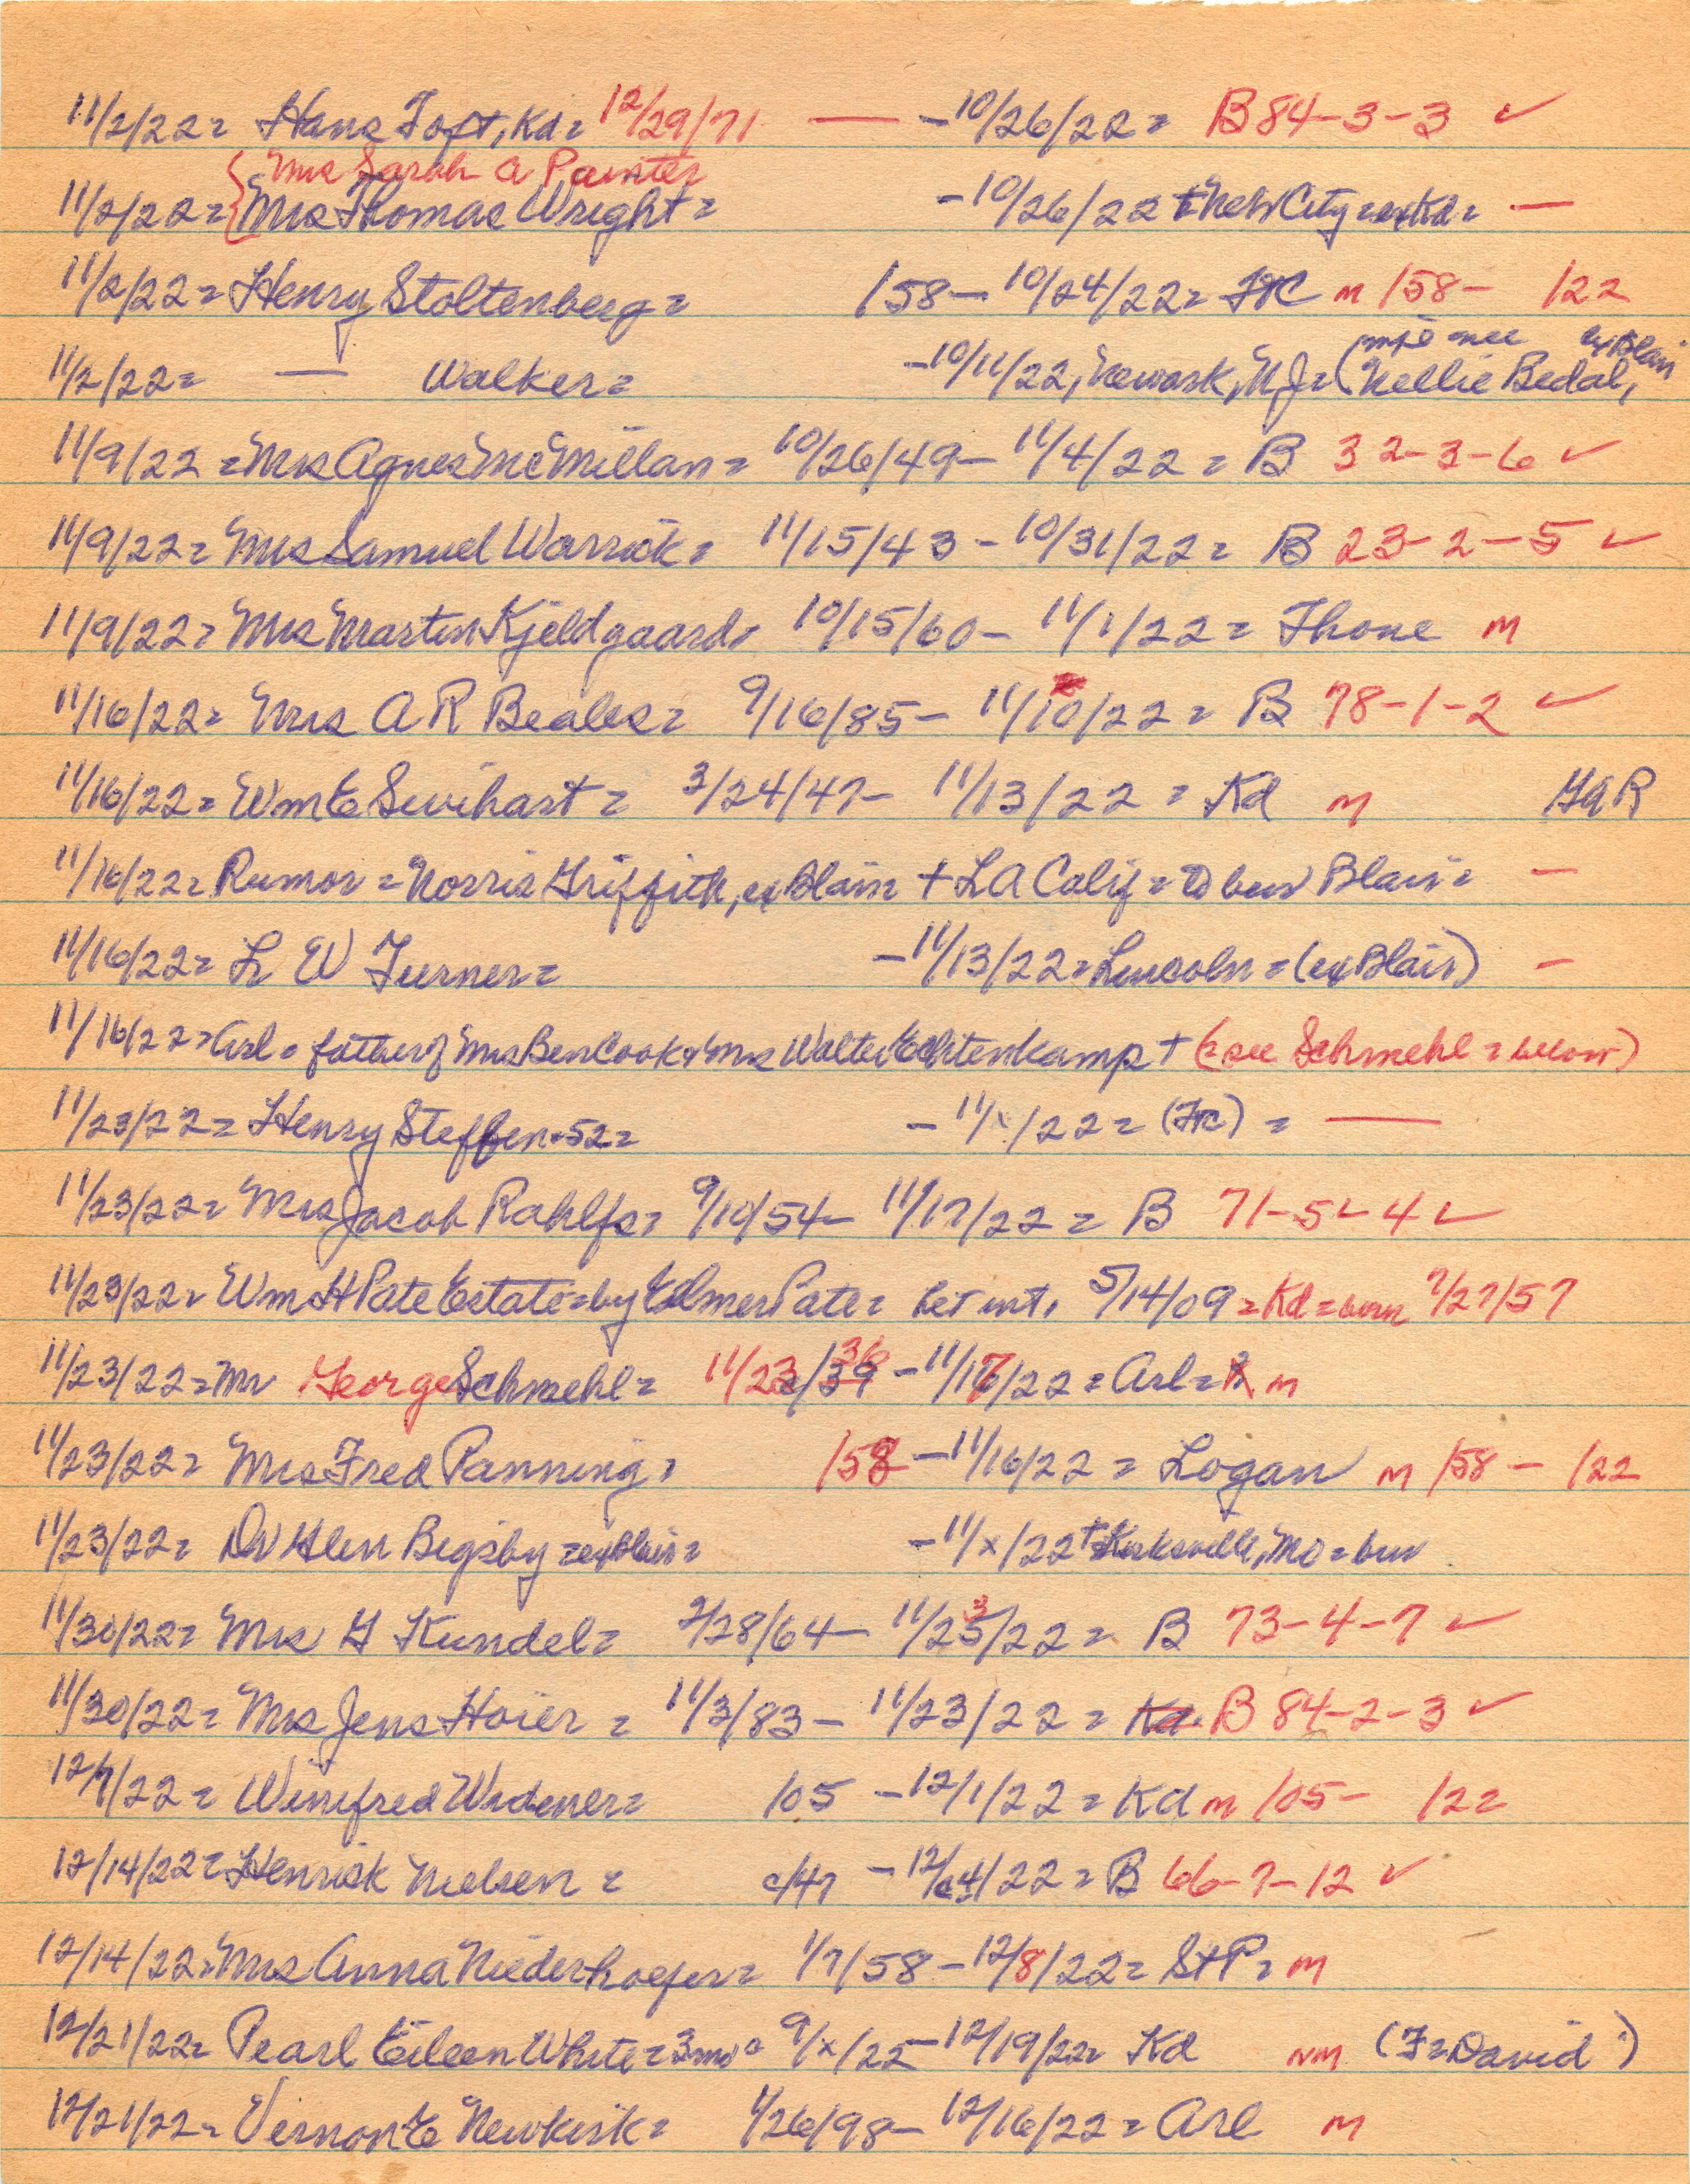 11/2/22= Hans Toft, Kd= 12/29/71 — -10/26/22= B 84-3-3 ✓
{ Mrs Sarah A Painter
11/2/22= Mrs Thomas Wright= -10/26/22 + New City = ex Kd= —
11/2/22= Henry Stoltenberg= /58- 10/24/22= FtC m /58- /22
mfo nee ex Blair
11/2/22= — Walker= -10/11/22, Newark, NJ= (Nellie Bedal,
11/9/22= Mrs Agnes McMillan= 10/26/49- 11/4/22= B 32-3-6 ✓
11/9/22= Mrs Samuel Warrick= 11/15/43 - 10/31/22= B 23-2-5 ✓
11/9/22= Mrs Martin Kjeldgaard= 10/15/60- 11/1/22= Thone m
11/16/22= Mrs A R Beales= 9/16/85- 11/10/22= B 78-1-2 ✓
11/16/22= Wm E Swihart= 3/24/47- 11/13/22= Kd m GAR
11/16/22= Rumor= Norris Griffith, ex Blair + LA Calif= to bur Blair= —
11/16/22= L W Turner= -11/13/22= Lincoln= (ex Blair) —
11/16/22= Arl= father of Mrs Ben Cook + Mrs Walter Echtenkamp + (= see Schmehl= below)
11/23/22= Henry Steffen=52= - 11/x/22= (FtC) = —
11/23/22= Mrs Jacob Rahlfs= 9/10/54- 11/17/22= B 71-5-4 ✓
11/23/22= Wm H Pate Estate= by Elmer Pate= let int, 5/14/09= Kd= born 7/27/57
11/23/22= Mr George Schmehl= 11/23/39 36 -11/17/22= Arl= m
11/23/22= Mrs Fred Panning= /58 -11/16/22= Logan m /58 - /22
11/23/22= Dr Glen Bigsby= ex Blair= -11/x/22 + Kirksville, Mo= bur
11/30/22= Mrs G Kundel= 2/28/64- 11/23/22= B 73-4-7 ✓
11/30/22= Mrs Jens Hoier= 11/3/83- 11/23/22= Kd. B 84-2-3 ✓
12/7/22= Winifred Widener= /05 -12/1/22= Kd m /05- /22
12/14/22= Henrik Nielsen= c/47 - 12/c4/22= B 66-7-12 ✓
12/14/22= Mrs Anna Niederhoefer= 1/7/58-12/8/22= StP= m
12/21/22= Pearl Eileen White= 3mo= 9/x/22-12/19/22= Kd nm (F=David)
12/21/22= Vernon E Newkirk= 1/26/98- 12/16/22= Arl m